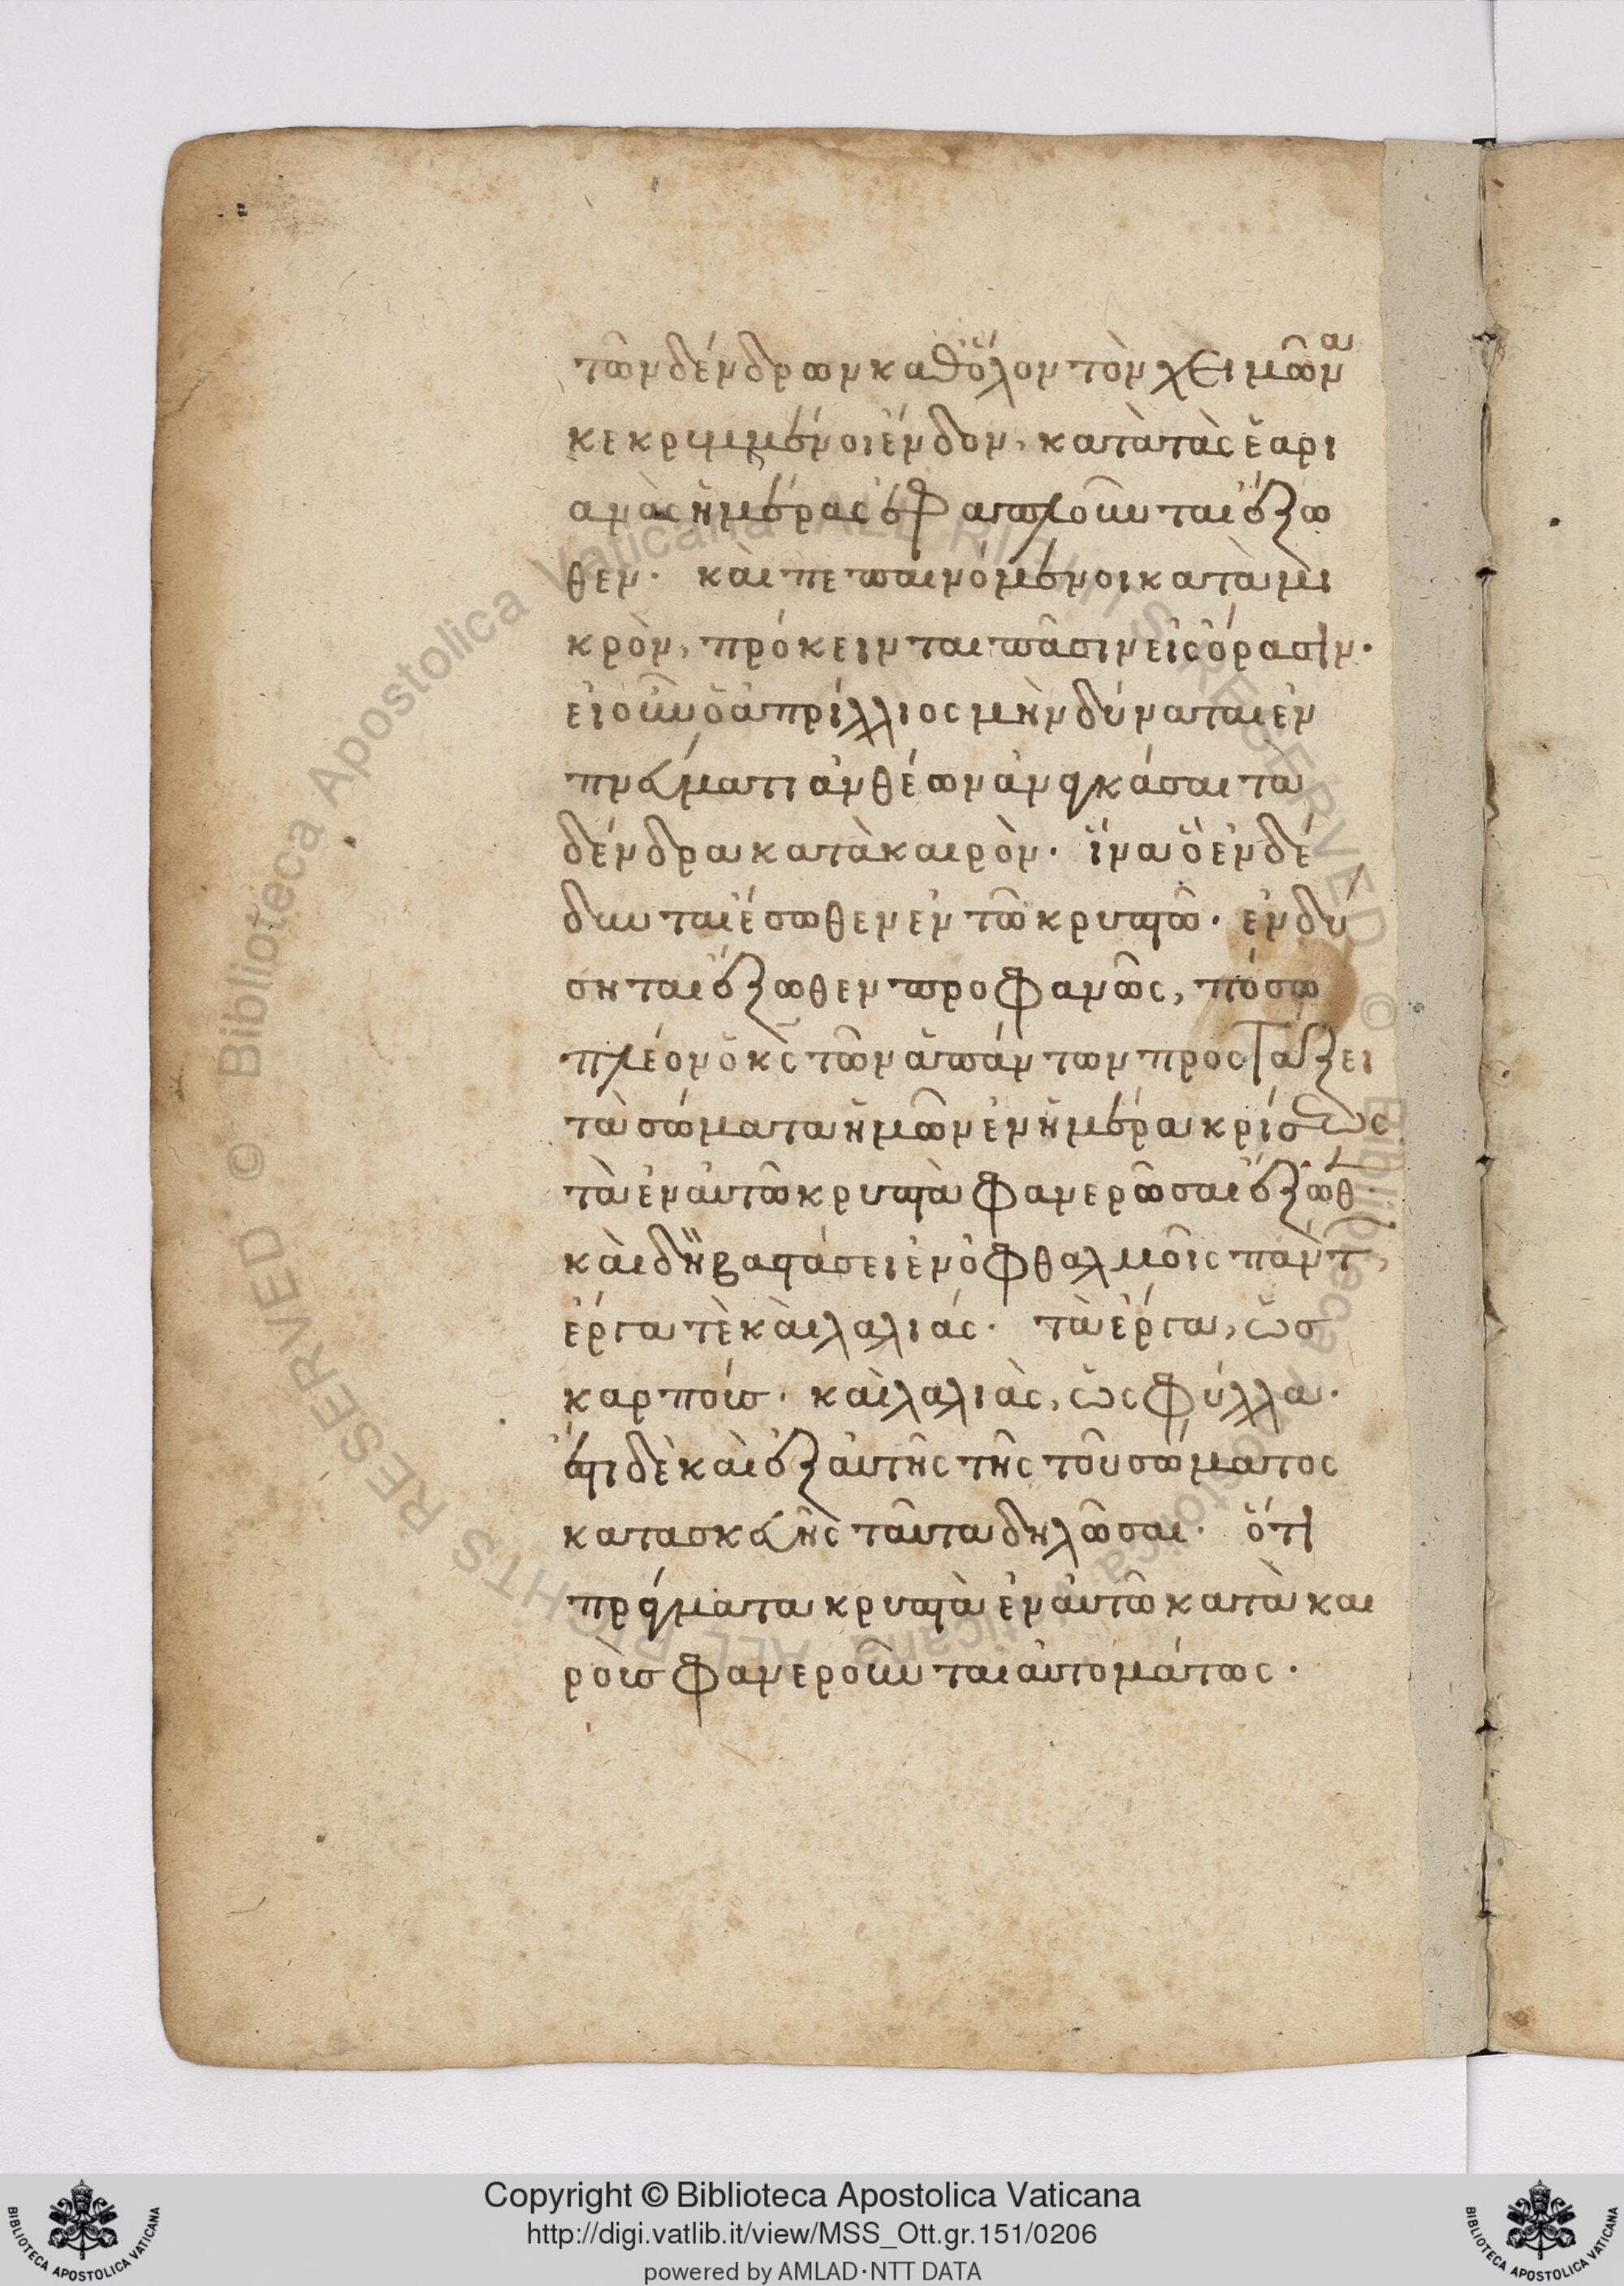 τῶν δένδρων καθόλον τὸν χειμῶνα
κεκρυμμένοι ἔνδον, κατὰ τὰς ἐαρι
ανὰς ἡμέρας ἐφαπλοῦνται ἔξω
θεν. καὶ πεπαινόμενοι κατὰ μι
κρὸν, πρόκεινται πᾶσιν εἰς ὅρασιν.
εἰ οὖν ὁ ἀπρίλλιος μὴν δύναται ἐν
πνεύματι ἀνθέων ἀναγκάσαι τὰ
δένδρα κατὰ καιρὸν. ἵνα ὃ ἐνδέ
δυνται ἔσωθεν ἐν τῶ κρυπτῶ. ἐνδύ
σηται ἔξωθεν προφανῶς, πόσω
πλέον ὁ κς τῶν ἁπάντων προστάξει
τὰ σώματα ἡμῶν ἐν ἡμέρα κρίσεως
τὰ ἐν αὐτῶ κρυπτὰ φανερῶσαι ἔξωθ
καὶ δὴ βαστάσει ἐν ὀφθαλμοῖς πάντ
ἔργα τὲ καὶ λαλιάς. τὰ ἔργα, ὡσ
καρποὺς. καὶ λαλιὰς, ὡς φύλλα.
ἔστι δὲ καὶ ἐξ αὐτῆς τῆς τοῦ σώματος
κατασκευῆς ταῦτα δηλῶσαι. ὅτι
πράγματα κρυπτὰ ἐν αὐτῶ κατὰ και
ροὺς φανεροῦνται αὐτομάτως.
Copyright © Biblioteca Apostolica Vaticana
http://digi.vatlib.it/view/MSS_Ott.gr.151/0206
powered by AMLAD·NTT DATA